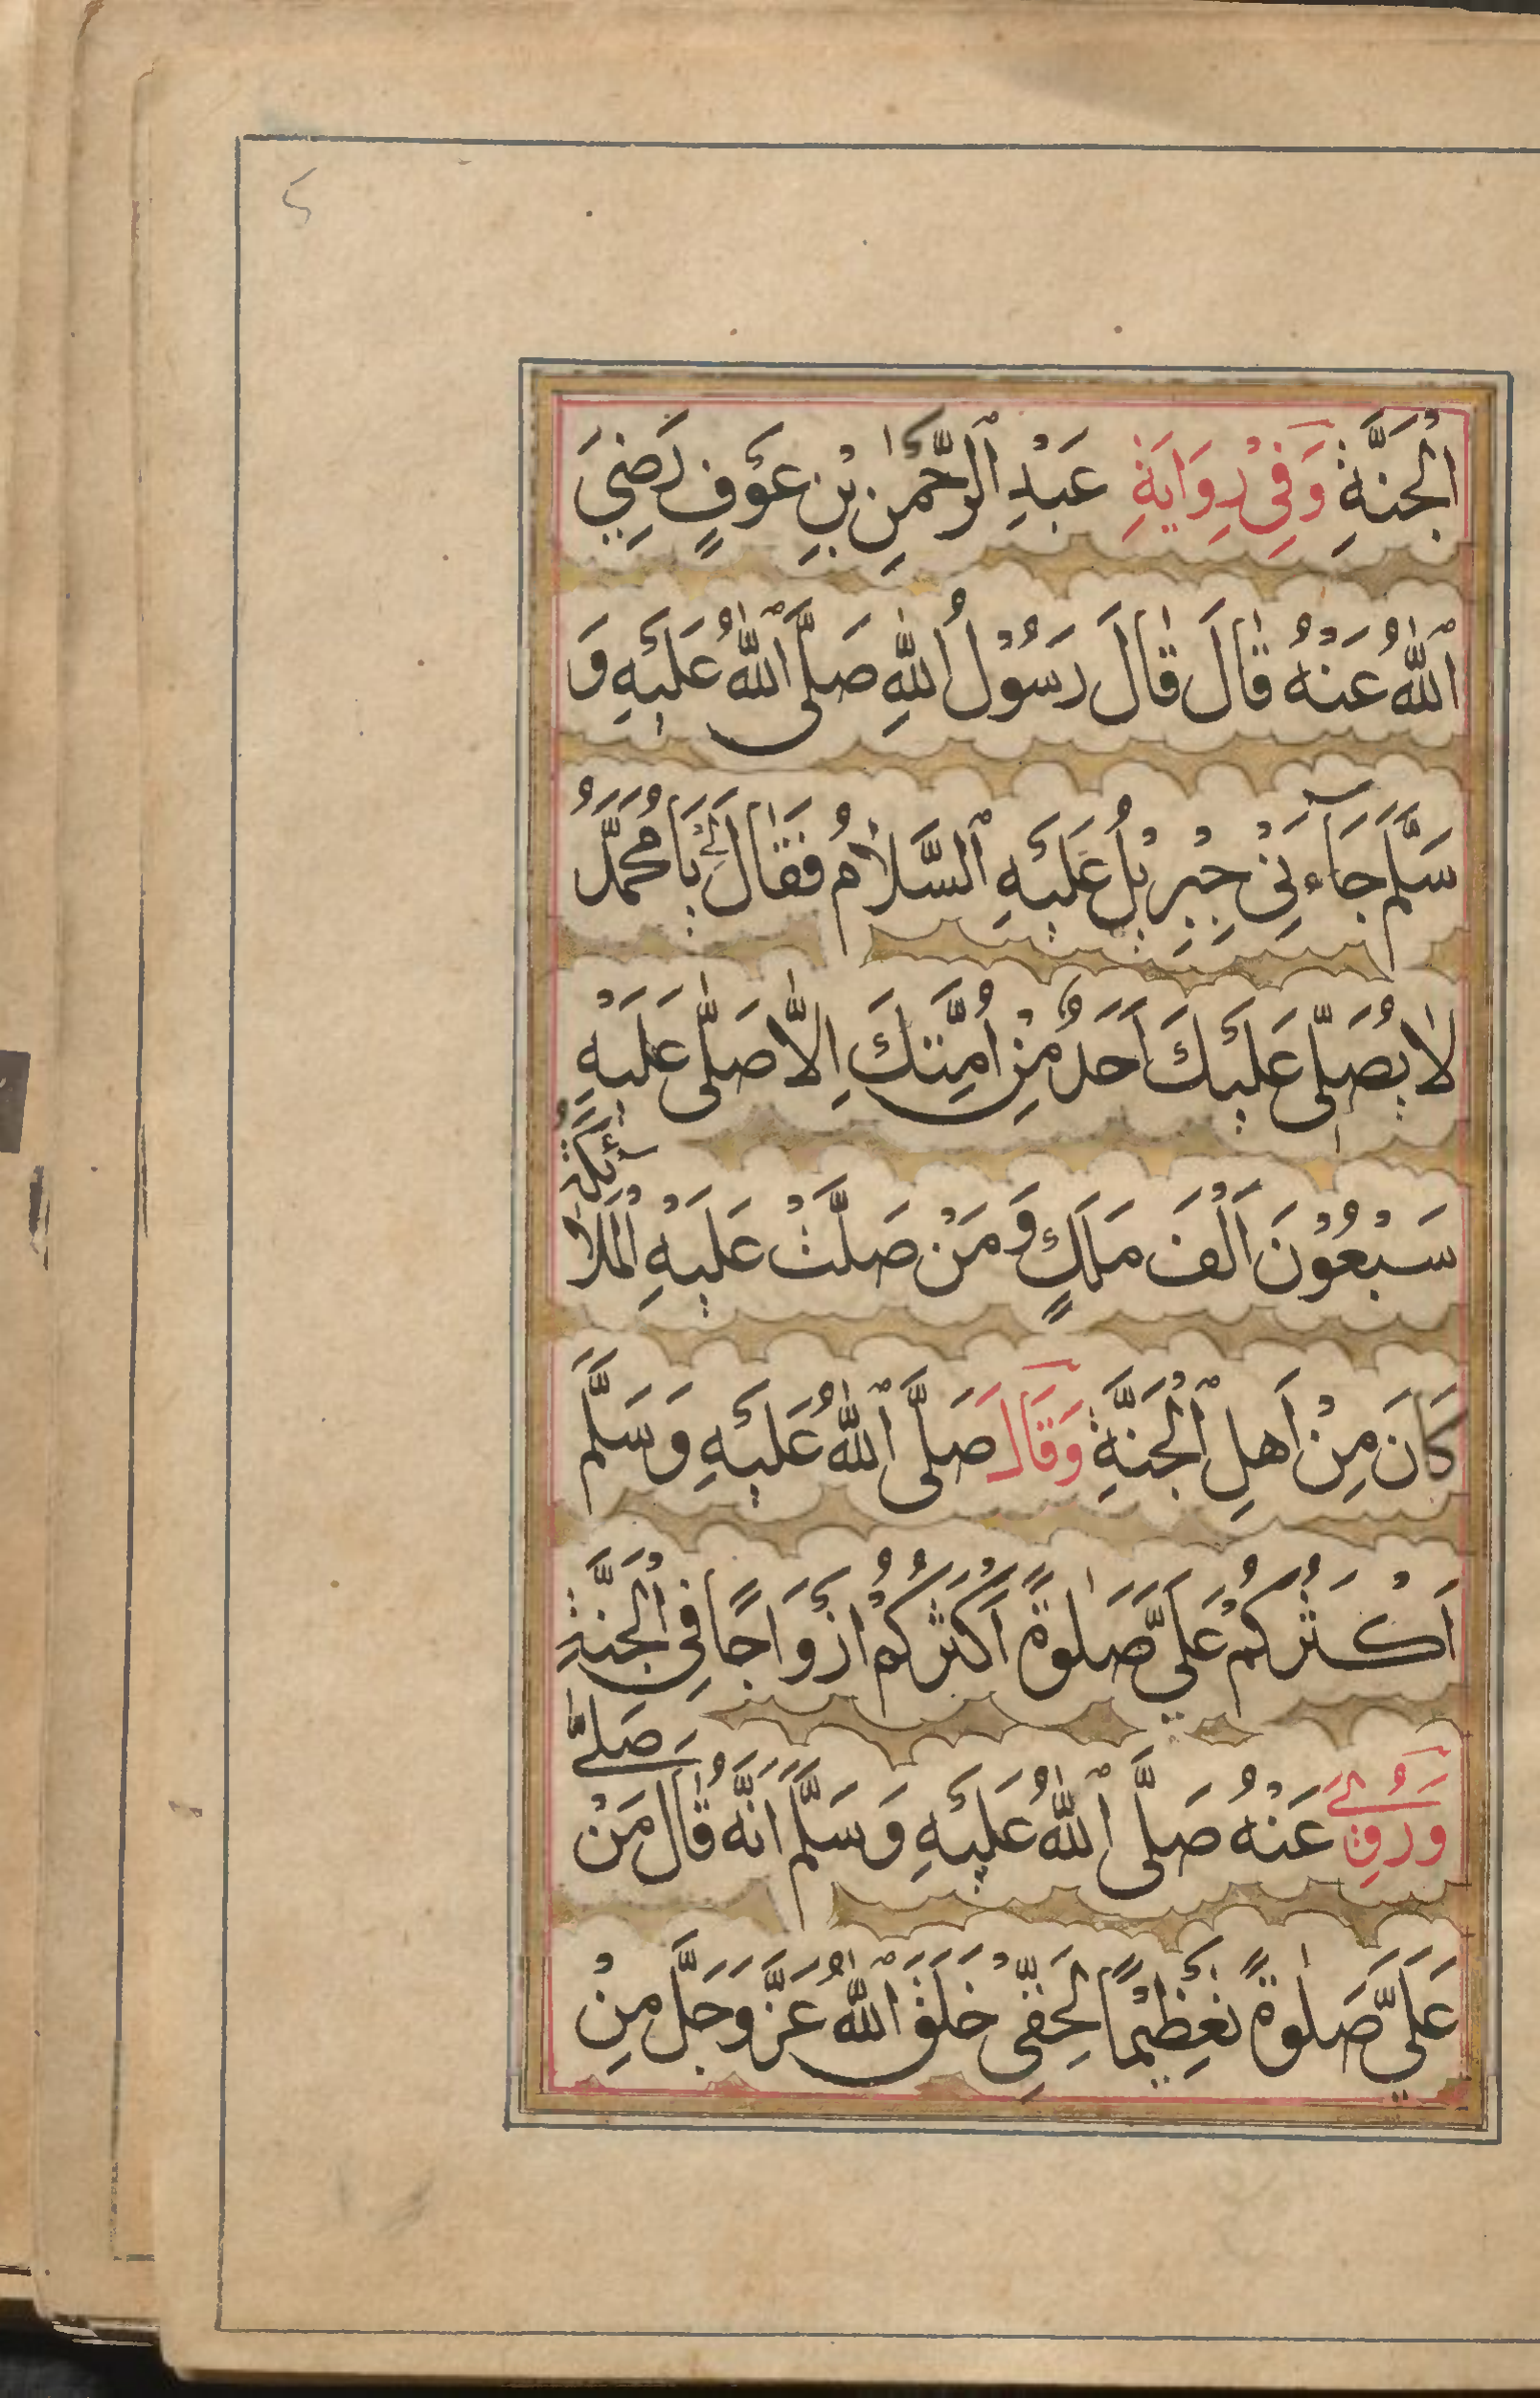 الْجَنَّةِ وَفِيْ رِوَايَةِ عَبْدِ الرَّحْمٰنِ بْنِ عَوْفٍ رَضِيَ
اللّٰهُ عَنْهُ قَالَ قَالَ رَسُوْلُ اللّٰهِ صَلَّى اللّٰهُ عَلَيْهِ وَ
سَلَّمَ جَآءَنِيْ جِبْرِيْلُ عَلَيْهِ السَّلَامُ فَقَالَ لِيْ يَا مُحَمَّدُ
لَا يُصَلِّيْ عَلَيْكَ اَحَدٌ مِنْ اُمَّتِكَ اِلَّا صَلّٰى عَلَيْهِ
سَبْعُوْنَ اَلْفَ مَلَكٍ وَمَنْ صَلَّتْ عَلَيْهِ الْمَلَآئِكَةُ
كَانَ مِنْ اَهلِ الْجَنَّةِ وَقَالَ صَلَّى اللّٰهُ عَلَيْهِ وَسَلَّمَ
اَكْثَرُكُمْ عَلَيَّ صَلٰوةً اَكْثَرُكُمْ اَزْوَاجًا فِي الْجَنَّةِ
وَرُوِيَ عَنْهُ صَلَّى اللّٰهُ عَلَيْهِ وَسَلَّمَ اَنَّهُ قَالَ مَنْ صَلّٰى
عَلَيَّ صَلٰوةً تَعْظِيْمًا لِحَقِّيْ خَلَقَ اللّٰهُ عَزَّ وَجَلَّ مِنْ